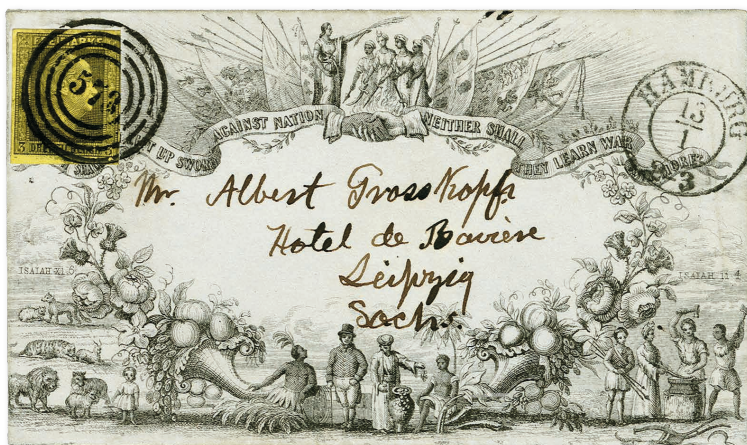 HAMBURG
13
1
3
UP SWORD AGAINST NATION NEITHER SHALL THEY LEARN WAR
Mr. Albert Grosskopf
Hotel de Bavière
Leipzig
Sachs.
ISAIAH XI.6
ISAIAH II 4